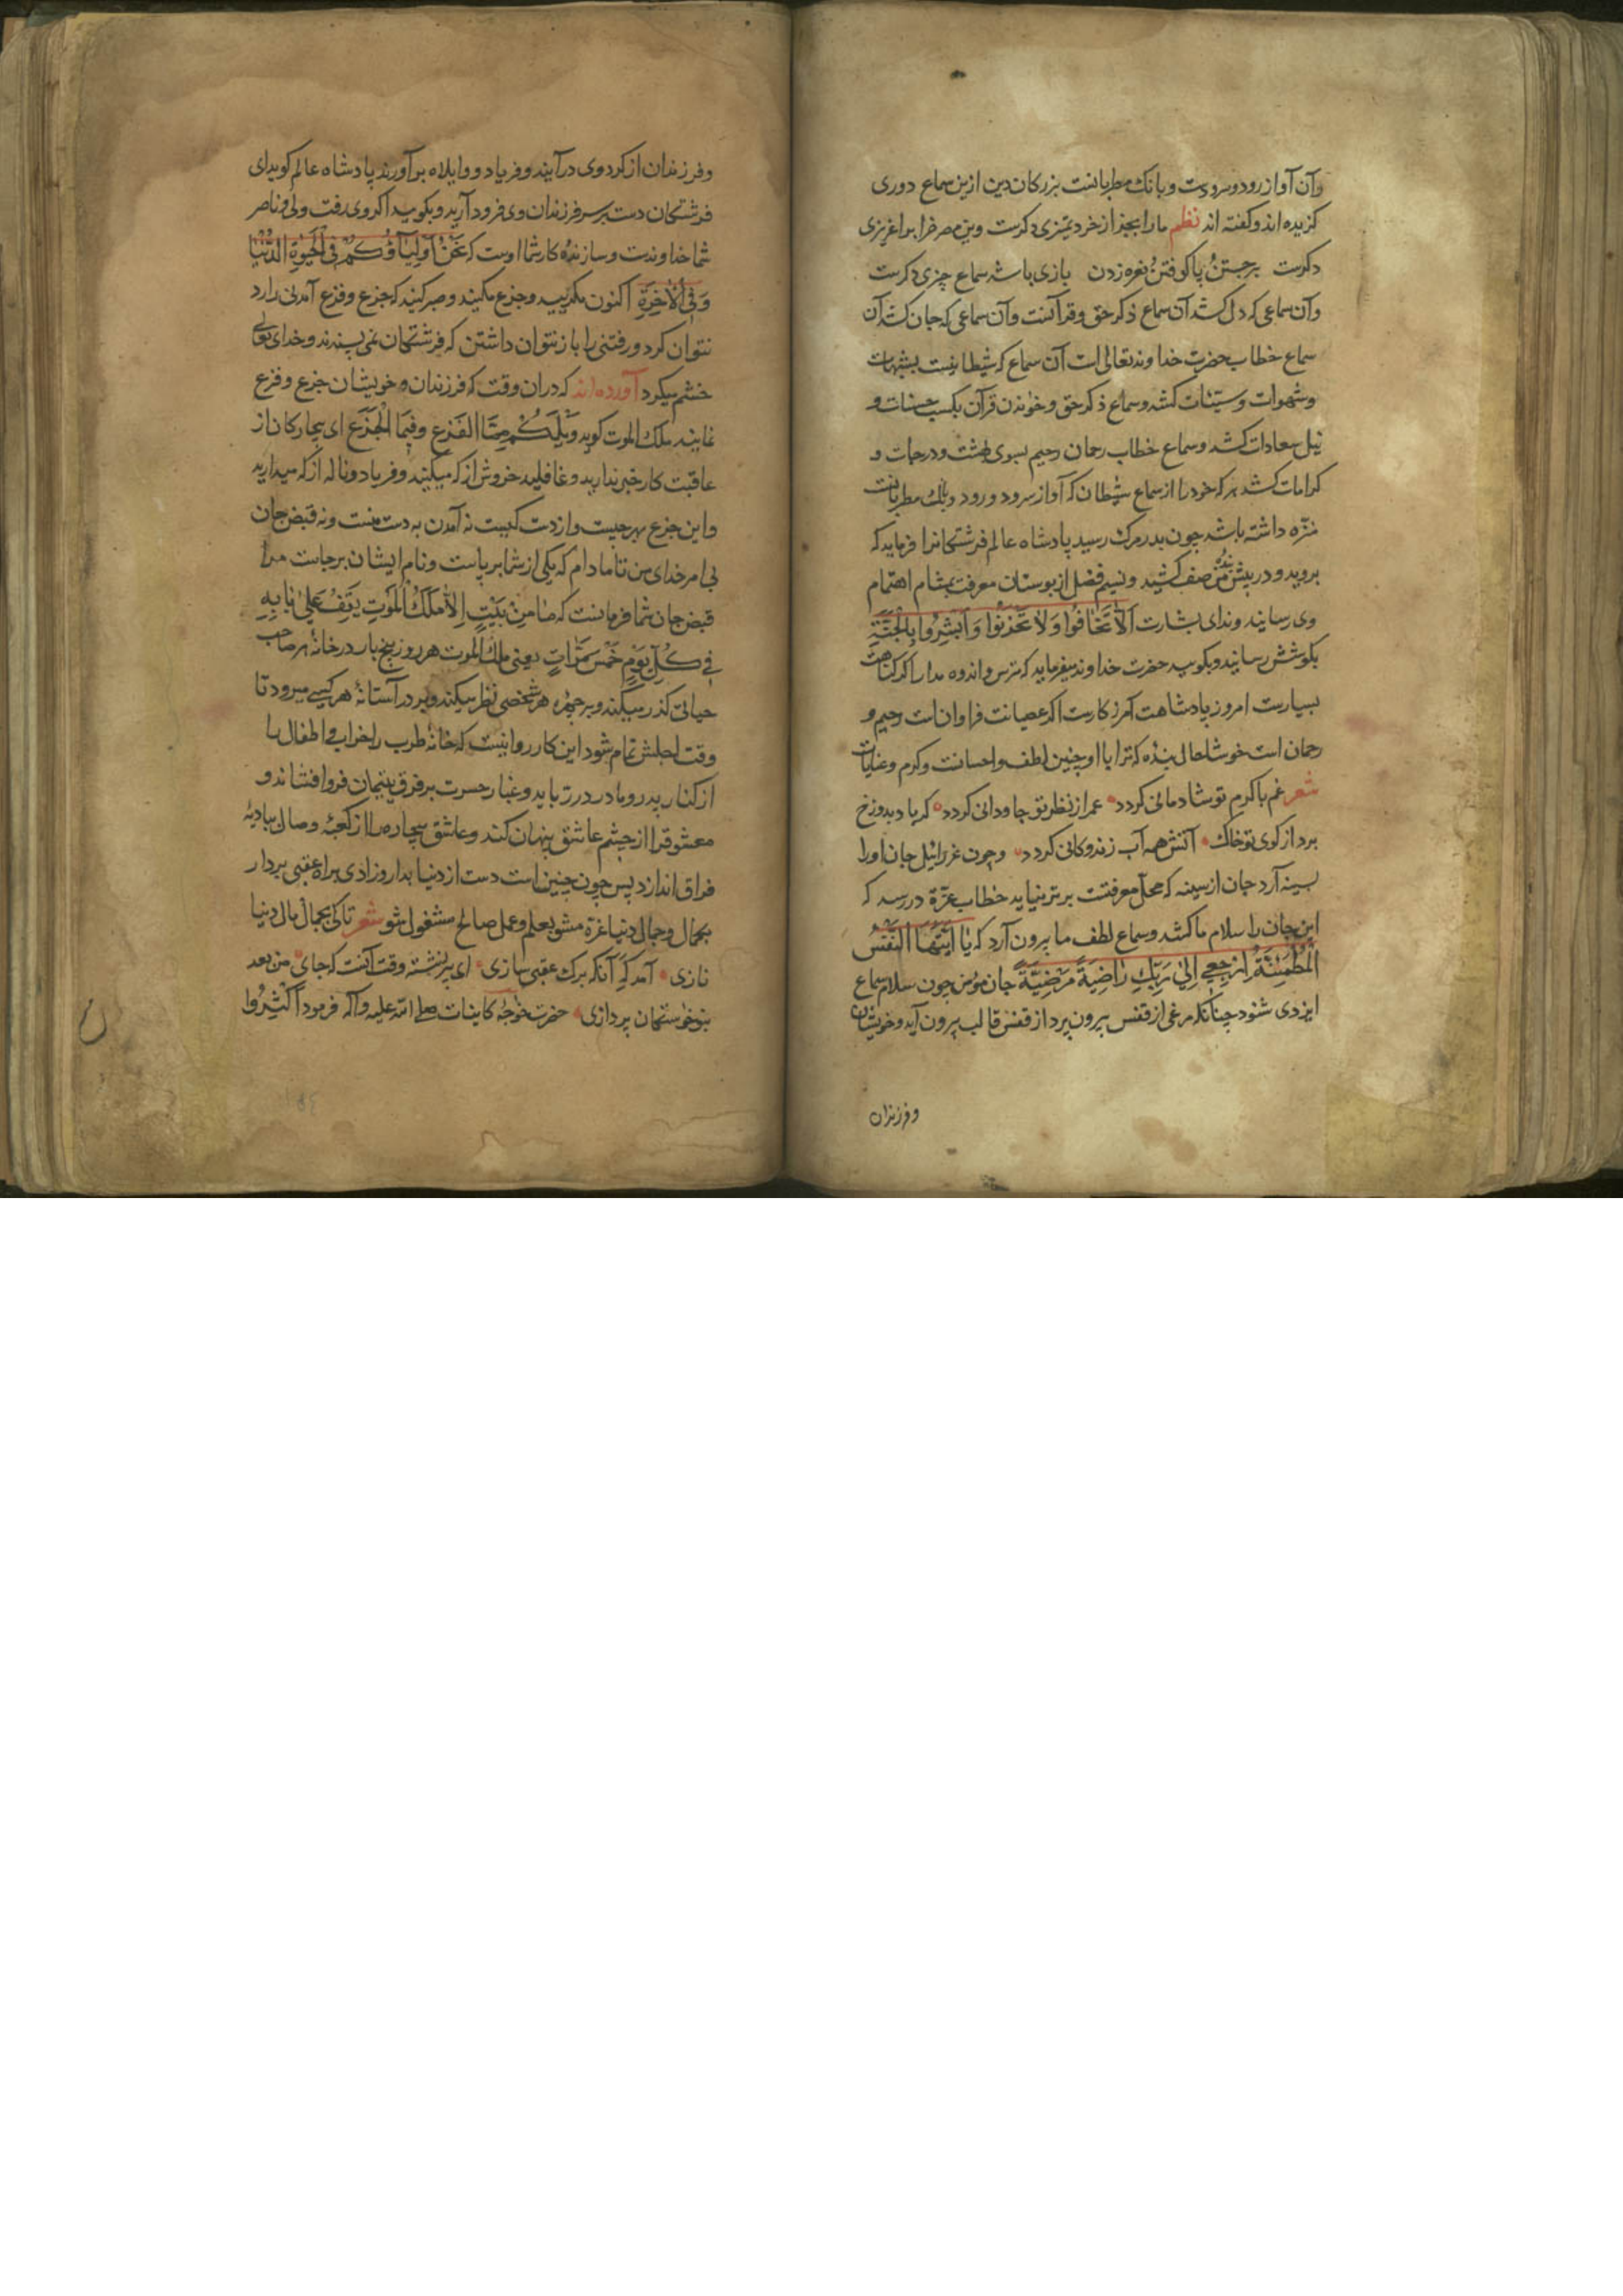 وآن آواز رود و سرودست و بانک مطربانست بزرکان دین ازین سماع دوری
کزیده اند و کفته اند نظم ما را بجز از خرد تمیزی دکرست وین مصر فرا بو اعزیزی
دکرست برجستن و پا کوفتن و نعره زدن بازی باشد سماع چیزی دکرست
وآن سماعی که دل کشد آن سماع ذکر حق و قرآنست وآن سماعی که جان کشد آن
سماع خطاب حضرت خداوند تعالی است آن سماع که شیطانیست بشبهات
و شهوات و سیّئات کشد و سماع ذکر حق و خواندن قرآن بکسب حسنات و
نیل سعادات کشد و سماع خطاب رحمان رحیم بسوی بهشت و درجات و
کرامات کشد هر که خود را از سماع شیطان که آواز سرود و رود و بانک مطربانست
منزّه داشته باشد چون بدر مرک رسید پادشاه عالم فرشتکانرا فرماید که
بروید و در پیش بنده من صف کشید و نسیم فضل از بوستان معرفت بمشام اهتمام
وی رسانید و ندای بشارت اَلَّا تَخَافُوا وَلَا تَحْزَنُوا وَاَبْشِرُوا بِالْجَنَّةِ
بکوشش رسانید و بکویید حضرت خداوند میفرماید که مترس و اندوه مدار اکر کناهت
بسیارست امروز پادشاهت آمرزکارست اکر عصیانت فراوان است رحیم و
رحمان است خوشا حال بنده که ترا با او چنین لطف و احسانست و کرم و عنایات
شعر غم با کرم تو شادمانی کردد عمر از نظر تو جاودانی کردد کر باد بدوزخ
برد از کوی تو خاک آتش همه آب زندکانی کردد و چون عزرائیل جان او را
بسینه آرد جان از سینه که محلّ معرفتست برتر نیاید خطاب عزّة در رسد که
این جان را سلام ما کشد و سماع لطف ما بیرون آرد که یَا اَیَّتُهَا النَّفْسُ
الْمُطْمَئِنَّةُ ارْجِعِی اِلیٰ رَبِّكِ رَاضِیَةً مَرْضِیَّةً جان مؤمن چون سلام سماع
ایزدی شنود چنانکه مرغی از قفس بیرون پرد از قفس قالب بیرون آید و خویشان
وفرزندان
وفرزندان از کرد وی درآیند و فریاد و وایلاه برآورند پادشاه عالم کوید ای
فرشتکان دست بر سر فرزندان وی فرود آرید و بکویید اکر وی رفت ولی و ناصر
شما خداوندست و سازندۀ کار شما اوست که نَحْنُ اَوْلِیَآؤُکُمْ فِی الْحَیٰوةِ الدُّنْیَا
وَفِی الْاٰخِرَةِ اکنون مکریید و جزع مکنید و صبر کنید که جزع و فزع آمدنی را رد
نتوان کرد و رفتنی را باز نتوان داشتن که فرشتکان نمی پسندند و خدای تعالی
خشم میکرد آورده اند که دران وقت که فرزندان و خویشان جزع و فزع
نمایند ملک الموت کوید وَیْلَکُمْ مِمَّا الْفَزَع وَفِیمَا الْجَزَع ای بیچارکان از
عاقبت کار خبر ندارید و غافلید خروش از که میکنید و فریاد و ناله از که میدارید
و این جزع بهر چیست و از دست کیست نه آمدن به دست منست و نه قبض جان
بی امر خدای من تا مادام که یکی از شما برپاست و نام ایشان برجاست مرا
قبض جان شما فرمانست که مَا مِنْ بَیْتٍ اِلَّا مَلَكُ الْمَوْتِ یَقِفُ عَلیٰ بَابِهِ
فِی کُلِّ یَوْمٍ خَمْسَ مَرَّاتٍ یعنی ملک الموت هر روز پنج بار در خانۀ هر صاحب
حیاتی کذر میکند و بر چهره هر شخصی نظر میکند و بر در آستانۀ هر کسی میرود تا
وقت اجلش تمام شود این کار روا نیست که خانۀ طرب را خراب و اطفال را
از کنار پدر و مادر در رباید و غبار حسرت بر فرق یتیمان فروافشاند و
معشوق را از چشم عاشق پنهان کند و عاشق بیچاره را از کعبۀ وصال ببادیۀ
فراق اندازد پس چون چنین است دست از دنیا بدار و زادی براه عقبی بردار
بجمال و جمالی دنیا غرّه مشو بعلم و عمل صالح مشغول شو شعر تا کی بجمال مال دنیا
نازی آمد که آنکه برک عقبی سازی ای پیر نشسته وقت آنست که جای من بعد
بنوخوستکان پردازی حضرت خواجه کاینات صلی الله علیه وآله فرمود اَکْثِرُوا